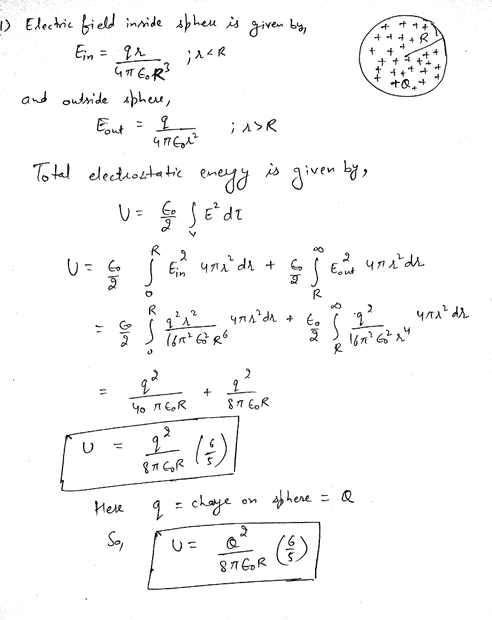 1) Electric field inside sphere is given by,
E_in = qr / 4π ε₀ R³ ; r < R
+ + + +
+ + + + R
+ + + + +
+ + + + +
+ Q, +
and outside sphere,
E_out = q / 4π ε₀ r² ; r > R
Total electrostatic energy is given by,
U = ε₀/2 ∫_v E² dτ
U = ε₀/2 ∫₀^R E_in² 4πr² dr + ε₀/2 ∫_R^∞ E_out² 4πr² dr
= ε₀/2 ∫₀^R q² r² / 16π² ε₀² R⁶ 4πr² dr + ε₀/2 ∫_R^∞ q² / 16π² ε₀² r⁴ 4πr² dr
= q² / 40 π ε₀ R + q² / 8π ε₀ R
U = q² / 8π ε₀ R (6/5)
Here q = charge on sphere = Q
So, U = Q² / 8π ε₀ R (6/5)